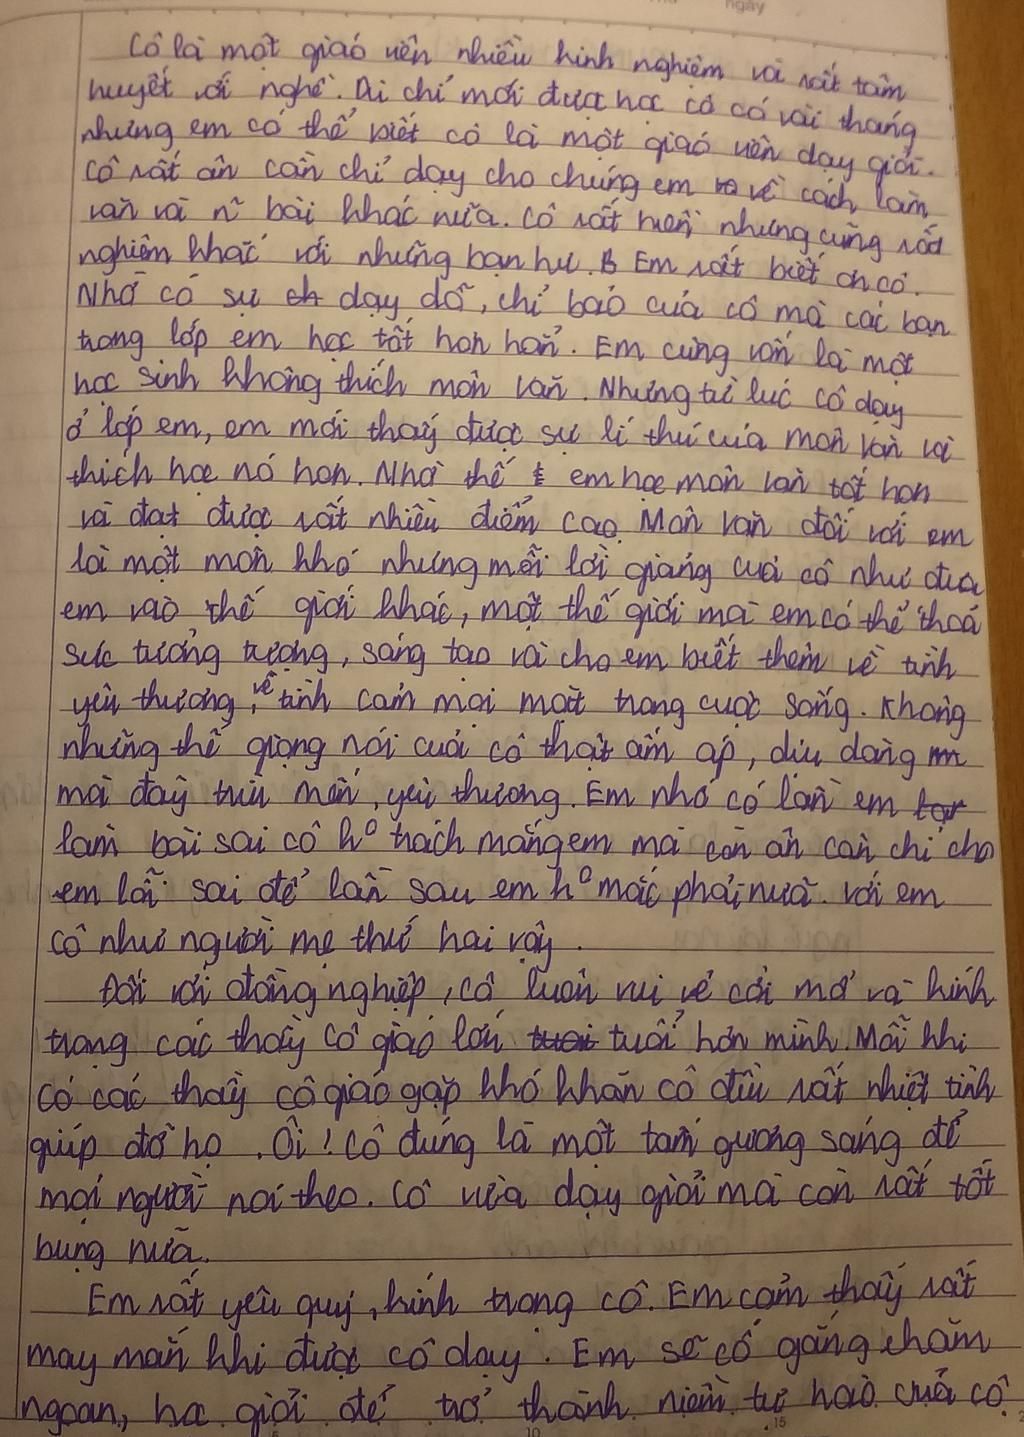 ngày
Cô là một giáo viên nhiều kinh nghiệm và rất tâm
huyết với nghề. Dù chỉ mới được học cô có vài tháng
nhưng em có thể biết cô là một giáo viên dạy giỏi.
Cô rất ân cần chỉ dạy cho chúng em về cách làm
văn và n~ bài khác nữa. Cô rất hiền nhưng cũng rất
nghiêm khắc với những bạn hư. Em rất biết ơn cô.
Nhờ có sự dạy dỗ, chỉ bảo của cô mà các bạn
trong lớp em học tốt hơn hẳn. Em cũng vốn là một
học sinh không thích môn văn. Nhưng từ lúc cô dạy
ở lớp em, em mới thấy được sự lí thú của môn văn và
thích học nó hơn. Nhờ thế em học môn văn tốt hơn
và đạt được rất nhiều điểm cao. Môn văn đối với em
là một môn khó nhưng mỗi lời giảng của cô như đưa
em vào thế giới khác, một thế giới mà em có thể thoả
sức tưởng tượng, sáng tạo và cho em biết thêm về tình
yêu thương, về tình cảm mọi mặt trong cuộc sống. Không
những thế giọng nói của cô thật ấm áp, dịu dàng
mà đầy trìu mến, yêu thương. Em nhớ có lần em
làm bài sai cô k⁰ trách mắng em mà còn ân cần chỉ cho
em lỗi sai để lần sau em k⁰ mắc phải nữa. Với em
cô như người mẹ thứ hai vậy.
Đối với đồng nghiệp, cô luôn vui vẻ cởi mở và kính
trọng các thầy cô giáo lớn tuổi hơn mình. Mỗi khi
có các thầy cô giáo gặp khó khăn cô đều rất nhiệt tình
giúp đỡ họ. Ôi! Cô đúng là một tấm gương sáng để
mọi người noi theo. Cô vừa dạy giỏi mà còn rất tốt
bụng nữa.
Em rất yêu quý, kính trọng cô. Em cảm thấy rất
may mắn khi được cô dạy. Em sẽ cố gắng chăm
ngoan, học giỏi để trở thành niềm tự hào của cô.
5 10 15